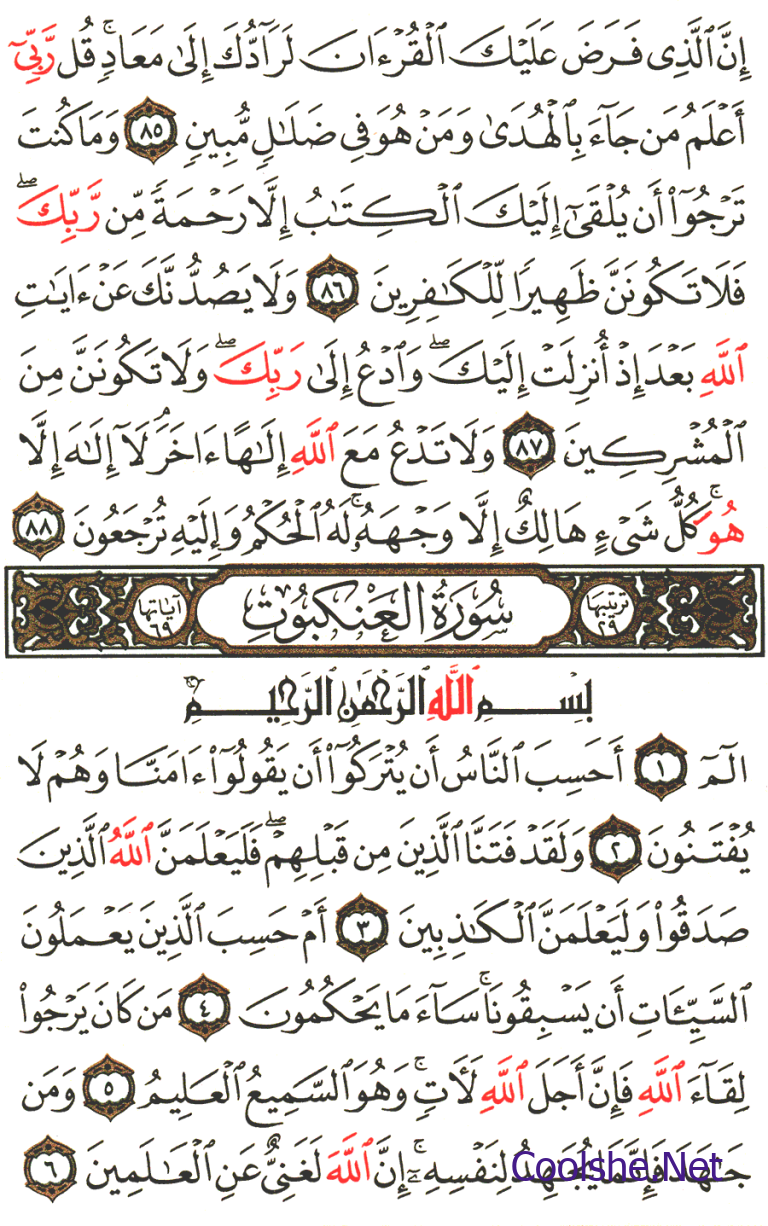 إِنَّ ٱلَّذِى فَرَضَ عَلَيْكَ ٱلْقُرْءَانَ لَرَآدُّكَ إِلَىٰ مَعَادٍ ۚ قُل رَّبِّىٓ
أَعْلَمُ مَن جَآءَ بِٱلْهُدَىٰ وَمَنْ هُوَ فِى ضَلَـٰلٍ مُّبِينٍ ٨٥ وَمَا كُنتَ
تَرْجُوٓا۟ أَن يُلْقَىٰٓ إِلَيْكَ ٱلْكِتَـٰبُ إِلَّا رَحْمَةً مِّن رَّبِّكَ ۖ
فَلَا تَكُونَنَّ ظَهِيرًا لِّلْكَـٰفِرِينَ ٨٦ وَلَا يَصُدُّنَّكَ عَنْ ءَايَـٰتِ
ٱللَّهِ بَعْدَ إِذْ أُنزِلَتْ إِلَيْكَ ۖ وَٱدْعُ إِلَىٰ رَبِّكَ ۖ وَلَا تَكُونَنَّ مِنَ
ٱلْمُشْرِكِينَ ٨٧ وَلَا تَدْعُ مَعَ ٱللَّهِ إِلَـٰهًا ءَاخَرَ ۘ لَآ إِلَـٰهَ إِلَّا
هُوَ ۚ كُلُّ شَىْءٍ هَالِكٌ إِلَّا وَجْهَهُۥ ۚ لَهُ ٱلْحُكْمُ وَإِلَيْهِ تُرْجَعُونَ ٨٨
ترتيبها ٢٩ سُورَةُ العَنكَبُوتِ آياتها ٦٩
بِسْمِ ٱللَّهِ ٱلرَّحْمَـٰنِ ٱلرَّحِيمِ
الٓمٓ ١ أَحَسِبَ ٱلنَّاسُ أَن يُتْرَكُوٓا۟ أَن يَقُولُوٓا۟ ءَامَنَّا وَهُمْ لَا
يُفْتَنُونَ ٢ وَلَقَدْ فَتَنَّا ٱلَّذِينَ مِن قَبْلِهِمْ ۖ فَلَيَعْلَمَنَّ ٱللَّهُ ٱلَّذِينَ
صَدَقُوا۟ وَلَيَعْلَمَنَّ ٱلْكَـٰذِبِينَ ٣ أَمْ حَسِبَ ٱلَّذِينَ يَعْمَلُونَ
ٱلسَّيِّـَٔاتِ أَن يَسْبِقُونَا ۚ سَآءَ مَا يَحْكُمُونَ ٤ مَن كَانَ يَرْجُوا۟
لِقَآءَ ٱللَّهِ فَإِنَّ أَجَلَ ٱللَّهِ لَـَٔاتٍ ۚ وَهُوَ ٱلسَّمِيعُ ٱلْعَلِيمُ ٥ وَمَن
جَـٰهَدَ فَإِنَّمَا يُجَـٰهِدُ لِنَفْسِهِۦٓ ۚ إِنَّ ٱللَّهَ لَغَنِىٌّ عَنِ ٱلْعَـٰلَمِينَ ٦
Coolshe.Net